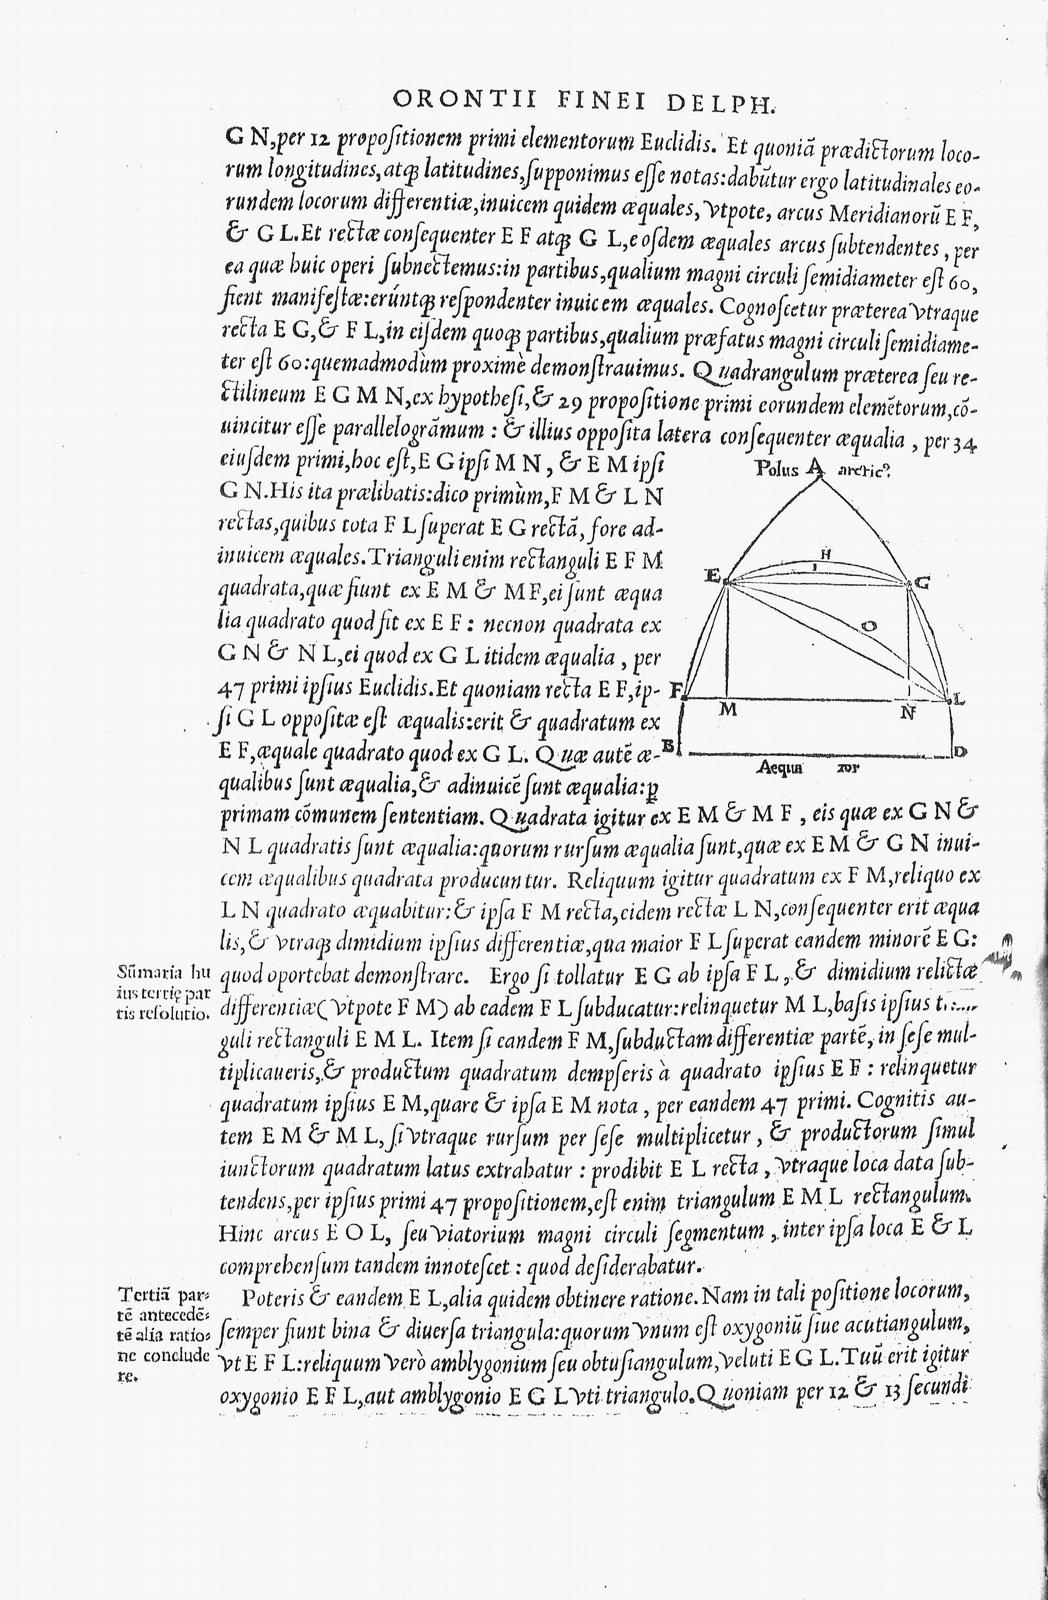 ORONTII FINEI DELPH.
G N, per 12 propositionem primi elementorum Euclidis. Et quoniã prædictorum loco-
rum longitudines, atq; latitudines, supponimus esse notas: dabũtur ergo latitudinales eo-
rundem locorum differentiæ, inuicem quidem æquales, vtpote, arcus Meridianorũ E F,
& G L. Et rectæ consequenter E F atq; G L, eosdem æquales arcus subtendentes, per
ea quæ huic operi subnectemus: in partibus, qualium magni circuli semidiameter est 60,
fient manifestæ: erúntq; respondenter inuicem æquales. Cognoscetur præterea vtraque
recta E G, & F L, in eisdem quoq; partibus, qualium præfatus magni circuli semidiame-
ter est 60: quemadmodùm proximè demonstrauimus. Quadrangulum præterea seu re-
ctilineum E G M N, ex hypothesi, & 29 propositione primi eorundem elemẽtorum, cõ-
uincitur esse parallelogrãmum : & illius opposita latera consequenter æqualia, per 34
eiusdem primi, hoc est, E G ipsi M N, & E M ipsi
G N. His ita prælibatis: dico primùm, F M & L N
rectas, quibus tota F L superat E G rectã, fore ad-
inuicem æquales. Trianguli enim rectanguli E F M
quadrata, quæ fiunt ex E M & M F, ei sunt æqua
lia quadrato quod fit ex E F : necnon quadrata ex
G N & N L, ei quod ex G L itidem æqualia, per
47 primi ipsius Euclidis. Et quoniam recta E F, ip-
si G L oppositæ est æqualis: erit & quadratum ex
E F, æquale quadrato quod ex G L. Quæ autẽ æ-
qualibus sunt æqualia, & adinuicẽ sunt æqualia: ꝑ
Polus A arctic9
E H I G
O
F M N L
B D
Aequa tor
primam cõmunem sententiam. Quadrata igitur ex E M & M F, eis quæ ex G N &
N L quadratis sunt æqualia: quorum rursum æqualia sunt, quæ ex E M & G N inui-
cem æqualibus quadrata producuntur. Reliquum igitur quadratum ex F M, reliquo ex
L N quadrato æquabitur: & ipsa F M recta, eidem rectæ L N, consequenter erit æqua
lis, & vtraq; dimidium ipsius differentiæ, qua maior F L superat eandem minorẽ E G:
quod oportebat demonstrare. Ergo si tollatur E G ab ipsa F L, & dimidium relictæ
Sũmaria hu
ius tertię par
tis resolutio.
differenciæ (vtpote F M) ab eadem F L subducatur: relinquetur M L, basis ipsius
guli rectanguli E M L. Item si eandem F M, subductam differentiæ partẽ, in sese mul-
tiplicaueris, & productum quadratum dempseris à quadrato ipsius E F : relinquetur
quadratum ipsius E M, quare & ipsa E M nota, per eandem 47 primi. Cognitis au-
tem E M & M L, si vtraque rursum per sese multiplicetur, & productorum simul
iunctorum quadratum latus extrahatur : prodibit E L recta, vtraque loca data sub-
tendens, per ipsius primi 47 propositionem, est enim triangulum E M L rectangulum.
Hinc arcus E O L, seu viatorium magni circuli segmentum, inter ipsa loca E & L
comprehensum tandem innotescet : quod desiderabatur.
Tertiã par-
tẽ antecedẽ-
tẽ alia ratio-
ne conclude
re.
Poteris & eandem E L, alia quidem obtinere ratione. Nam in tali positione locorum,
semper fiunt bina & diuersa triangula: quorum vnum est oxygoniũ siue acutiangulum,
vt E F L: reliquum verò amblygonium seu obtusiangulum, veluti E G L. Tuũ erit igitur
oxygonio E F L, aut amblygonio E G L vti triangulo. Quoniam per 12 & 13 secundi